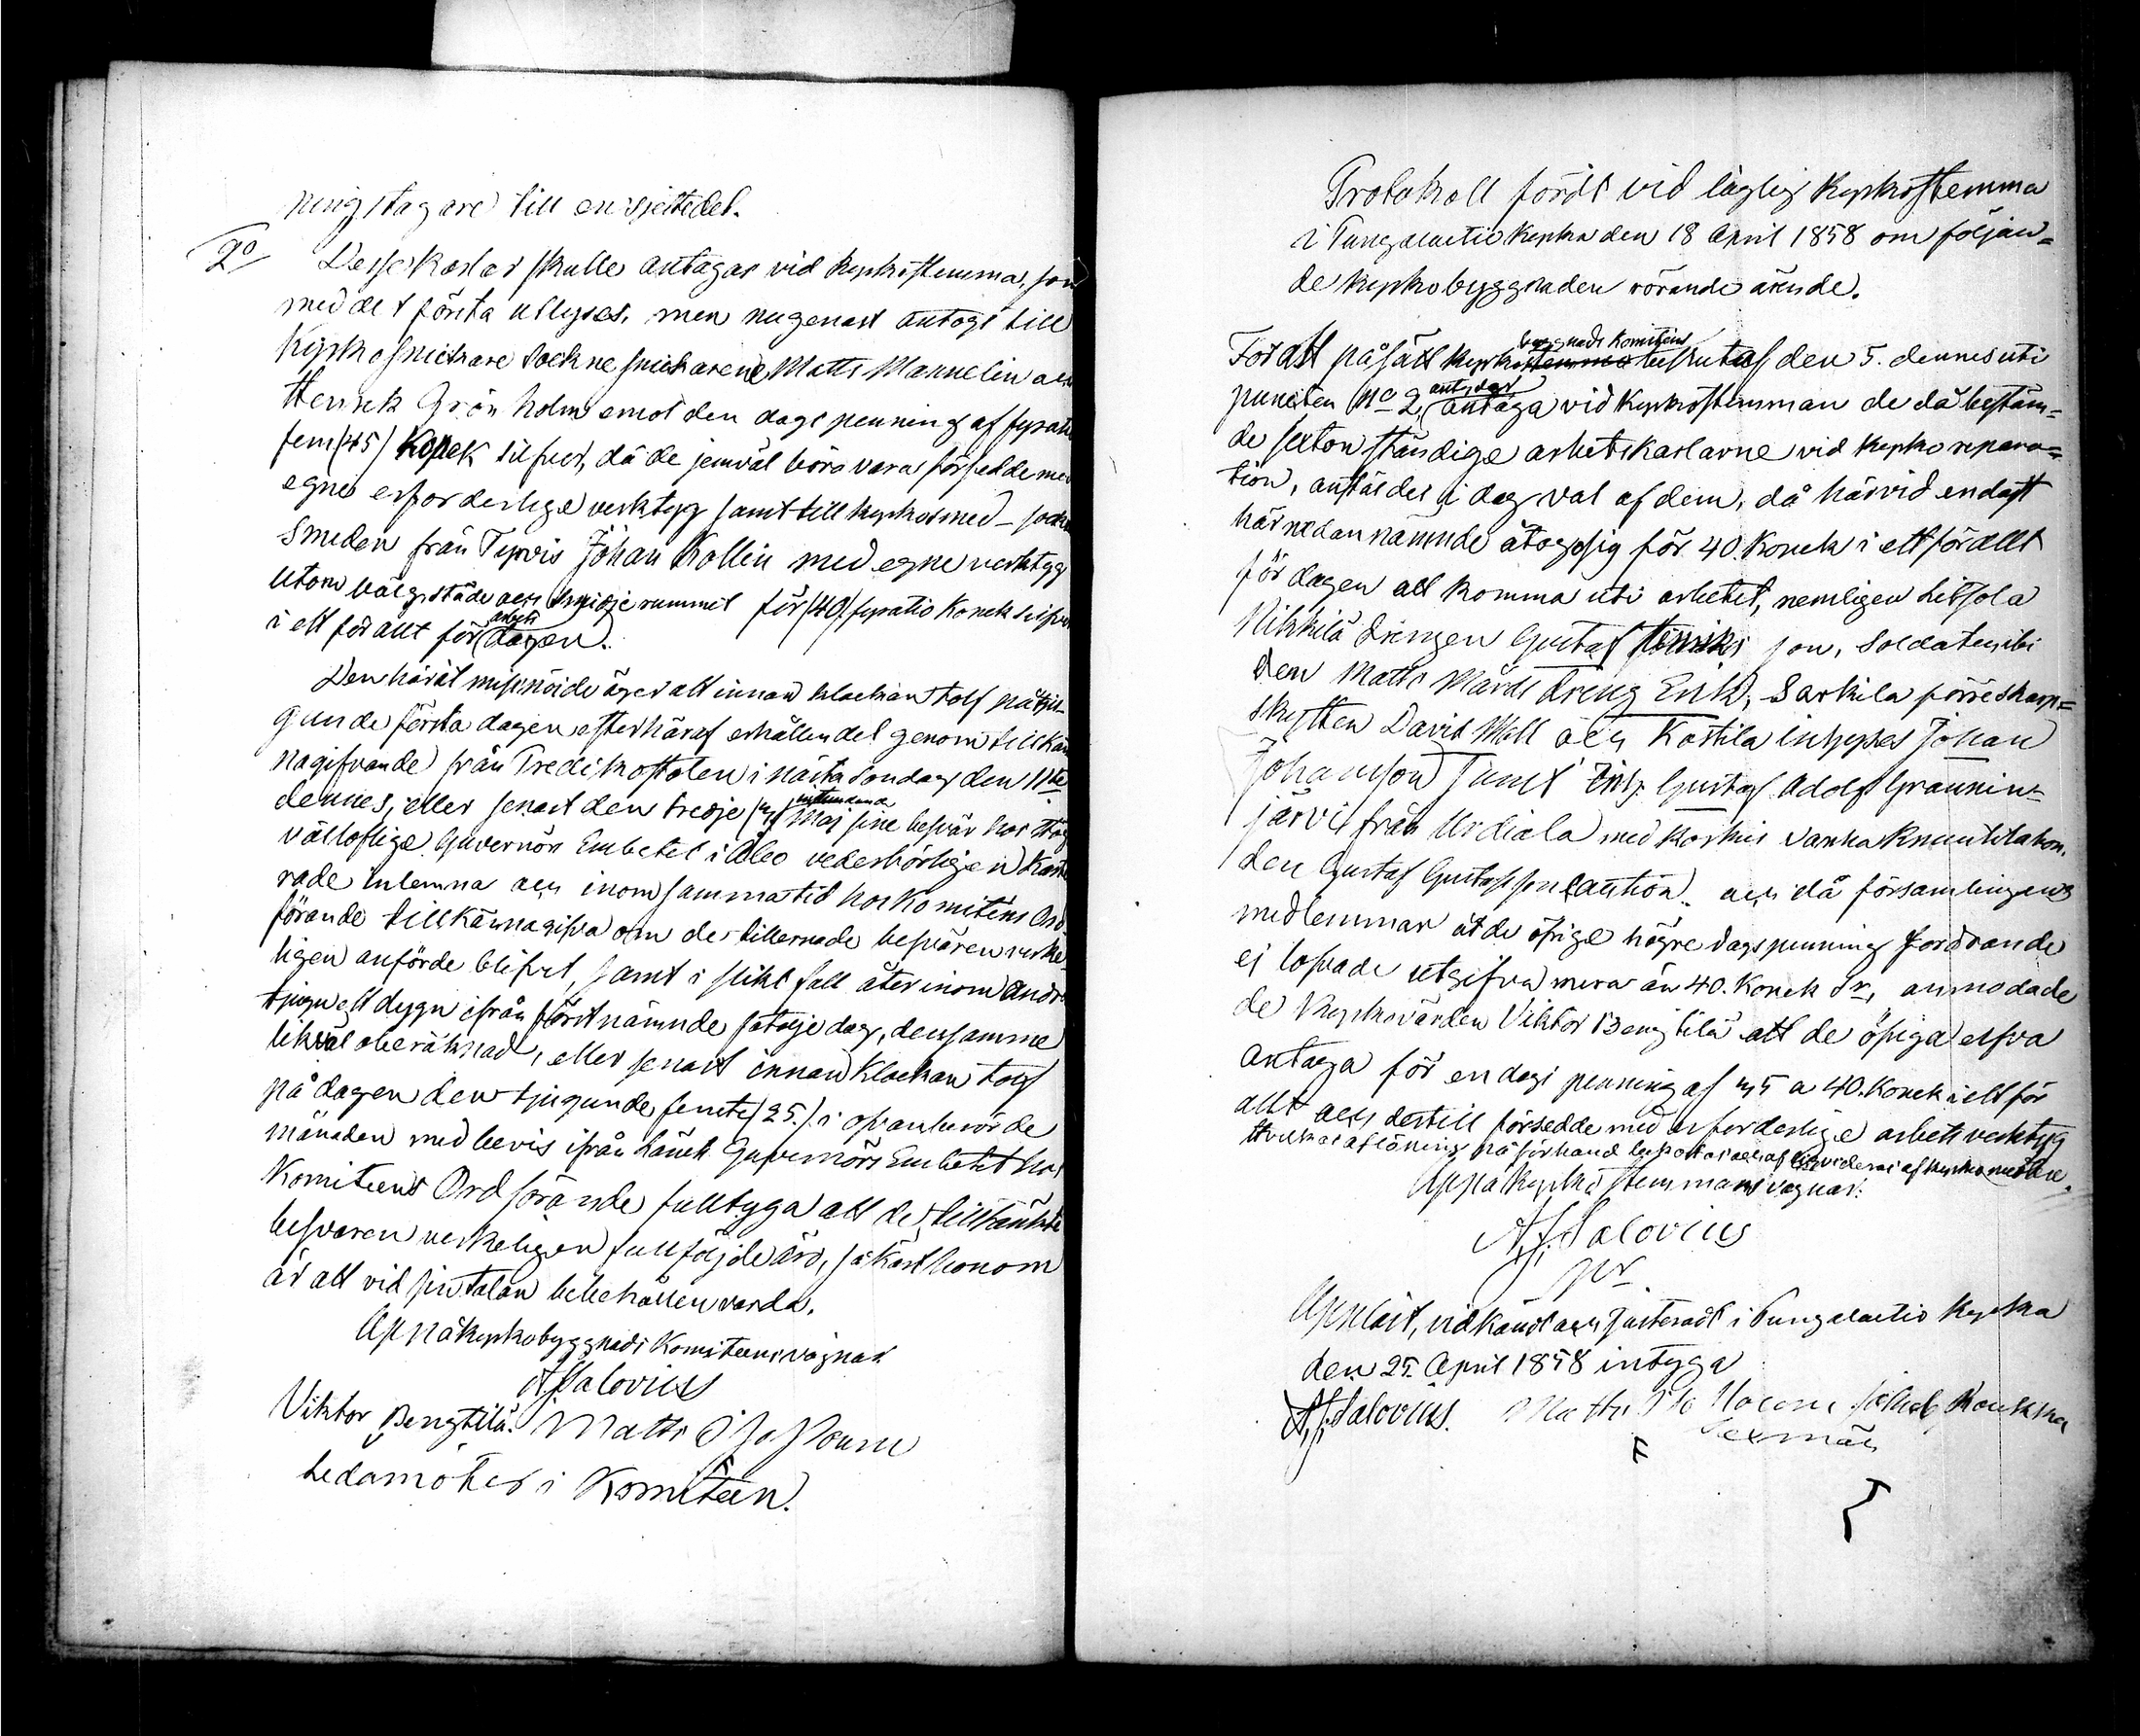 ningstagare till en sjettedel.
2o Desse Karlar skulle antagas vid Kyrkostemma, som
med det första utlyses, men nu genast antogs till
Kyrkosnickare Sockne snickarene Matts Mannelin och
Henrik Grönholm emot den dags penning af fyratio
fem (45) Kopek silfver, då de jemväl böra vara försedde med
egne erforderlige verktyg samt till kyrkosmed - socken
Smeden från Tyrvis Johan Kollin med egne verktyg
utom och smidje rummet för (40) fyratio Kopek silfver
i ett för allt för arbets dagen.
Den häråt missnöjde äger att innan klockan tolf på tju-
gunde första dagen efter häraf erhållen del genom tillkän
nagifvande från Predikostolen i nästa Söndag den 11te
dennes, eller senast den tredje (3) instundande Maj sine besvär hos Hög
vällofliga Guvernörs Embetet i Åbo vederbörligen
rade inlemna och inom samma tid hos Komiténs Ord-
förande tillkännagifva om de tillernade besvären verke-
ligen anförde blifvit, samt i slikt fall åter inom andra
tjugu ett dygn ifrån förstnämnde dag, densamme
likväl oberäknad, eller senast innan Klockan tolf
på dagen den tjugunde femte (25.) i ofvanberörde
månaden med bevis ifrån Länets Guvernörs Embetet hos
Komiteens Ordförande fulltyga att de tilltänkte
besvären verkeligen fullföljde äro, så kärt honom
är att vid sin talan bibehållen varda.
På Kyrkobyggnads Komiteens vägnar
AJSalovius
Viktor Bengtilä. Matts
Ledamöter i Komitéen.
Protokoll fördt vid laglig Kyrkostemma
i Pungalaitio Kyrka den 18 April 1858 om följan-
de kyrkobyggnaden rörande ärende.
För att på sätt byggnads Komiténs beslutat den 5. dennes uti
puncten No 2, antaga vid Kyrkostemman de då bestäm-
de sexton ständige arbetskarlarne vid Kyrko repara-
tion, anstäldes i dag val af dem, då härvid endast
här nedannämnde åtogo sig för 40 Kopek i ett för allt
för dagen att komma uti arbetet, nemligen Liitsola
Nikkilä Drengen Gustaf Henriks son, Soldaten
den Matts Mårds Dreng Erik, Sarkila förre skarp-
skytten David Moll och Kostila inhyses Johan
Johansson samt Inh. Gustaf Adolf Grannin-
järvi från Urdiala med Koskis Vanha Knuutila bon-
den Gustaf Gustafsson Caution. och då församlingens
medlemmar åt de öfrige högre dagspenning fordrande
ej lofvade utgifva mera än 40. Kopek Sr, anmodade
de Kyrkovärden Viktor Bengtilä att de öfriga elfva
antaga för en dags penning af 35 a 40. Kopek i ett för
allt och dertill försedde med erforderlige arbets verktyg
aflöning på förhand af kyrkomedlen.
På Kyrkostemmans vägnar:
AJSalovius
Uppläst, vidkändt och Justeradt i Pungalaitio Kyrka
den 25. April 1858 intyga
AJSalovius. Matts Jakob Koukka
Sexmän